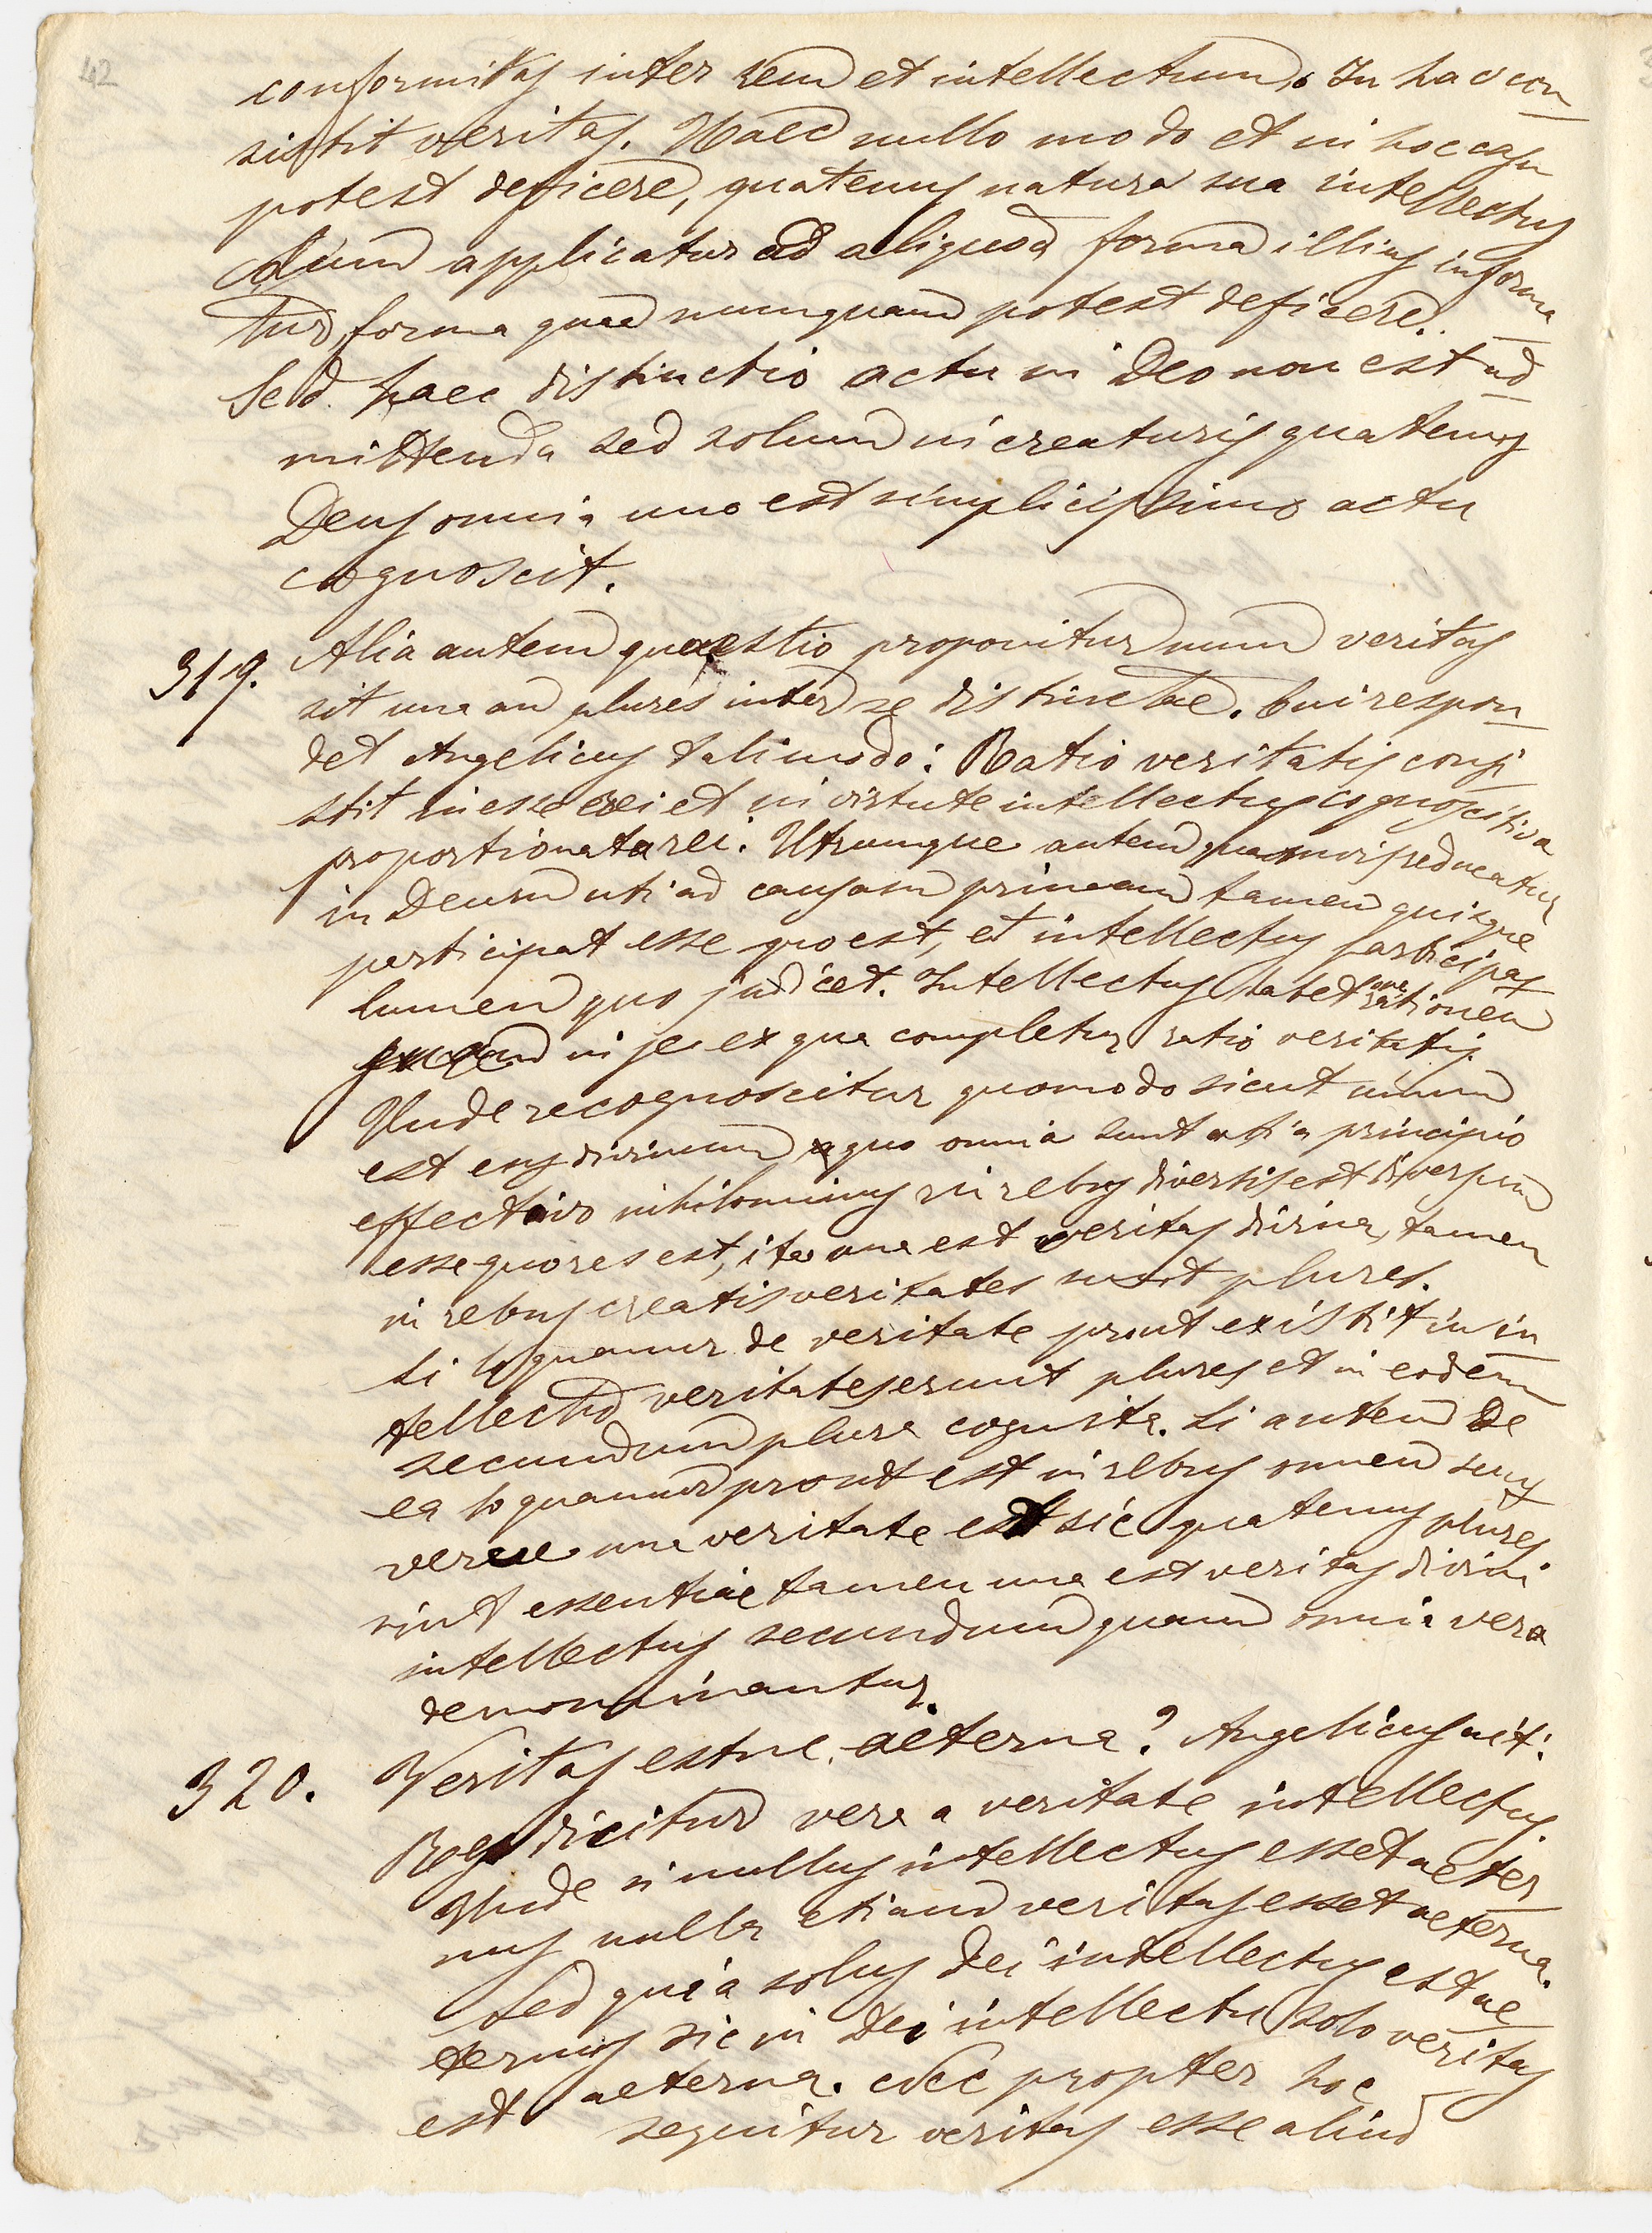 42
conformitas inter rem et intellectum. In hac con
sistit veritas. Haec nullo modo et in hoc casu
potest deficere, quatenus natura sua intellectus
dum applicatur ad aliquod forma illius informa
tur, forma quae numquam potest deficere.
Sed haec distinctio actu in Deo non est ad
mittenda sed solum in creaturis quatenus
Deus omnia uno est simplicissimo actu
cognoscit.
319. Alia autem quaestio proponitur num veritas
sit una an plures inter se distinctae. Cui respon
det Angelicus tali modo: Ratio veritatis consi
stit in esse rei et in virtute intellectus cognoscitiva
proportionata rei. Utrumque autem quamvis reducatur
in Deum uti ad causam primam tamen quisque
participat esse quo est, et intellectus participat
lumen quo judicet. Intellectus habet rationem
in se ex qua completur ratio veritatis.
Unde recognoscitur quomodo sicut unum
est ens divinum a quo omnia sunt uti a principio
effectivo nihilominus in rebus diversis est diversum
esse quo res est, ita una est veritas divina, tamen
in rebus creatis veritates sunt plures.
Si loquamur de veritate prout existit in in
tellectu veritates erunt plures et in eodem
secundum plura cognita. Si autem de
ea loquamur prout est in rebus omnes sunt
verae una veritate est sic quatenus plures
sint essentiae tamen una est veritas divini
intellectus secundum quam omnia vera
denominantur.
320. Veritas estne aeterna? Angelicus ait:
Res dicitur vera a veritate intellectus.
Unde si nullus intellectus esset aeter
nus nulla etiam veritas esset aeterna.
Sed quia solus Dei intellectus est ae
ternus sic in Dei intellectu solo veritas
est aeterna. Nec propter hoc
sequitur veritas esse aliud